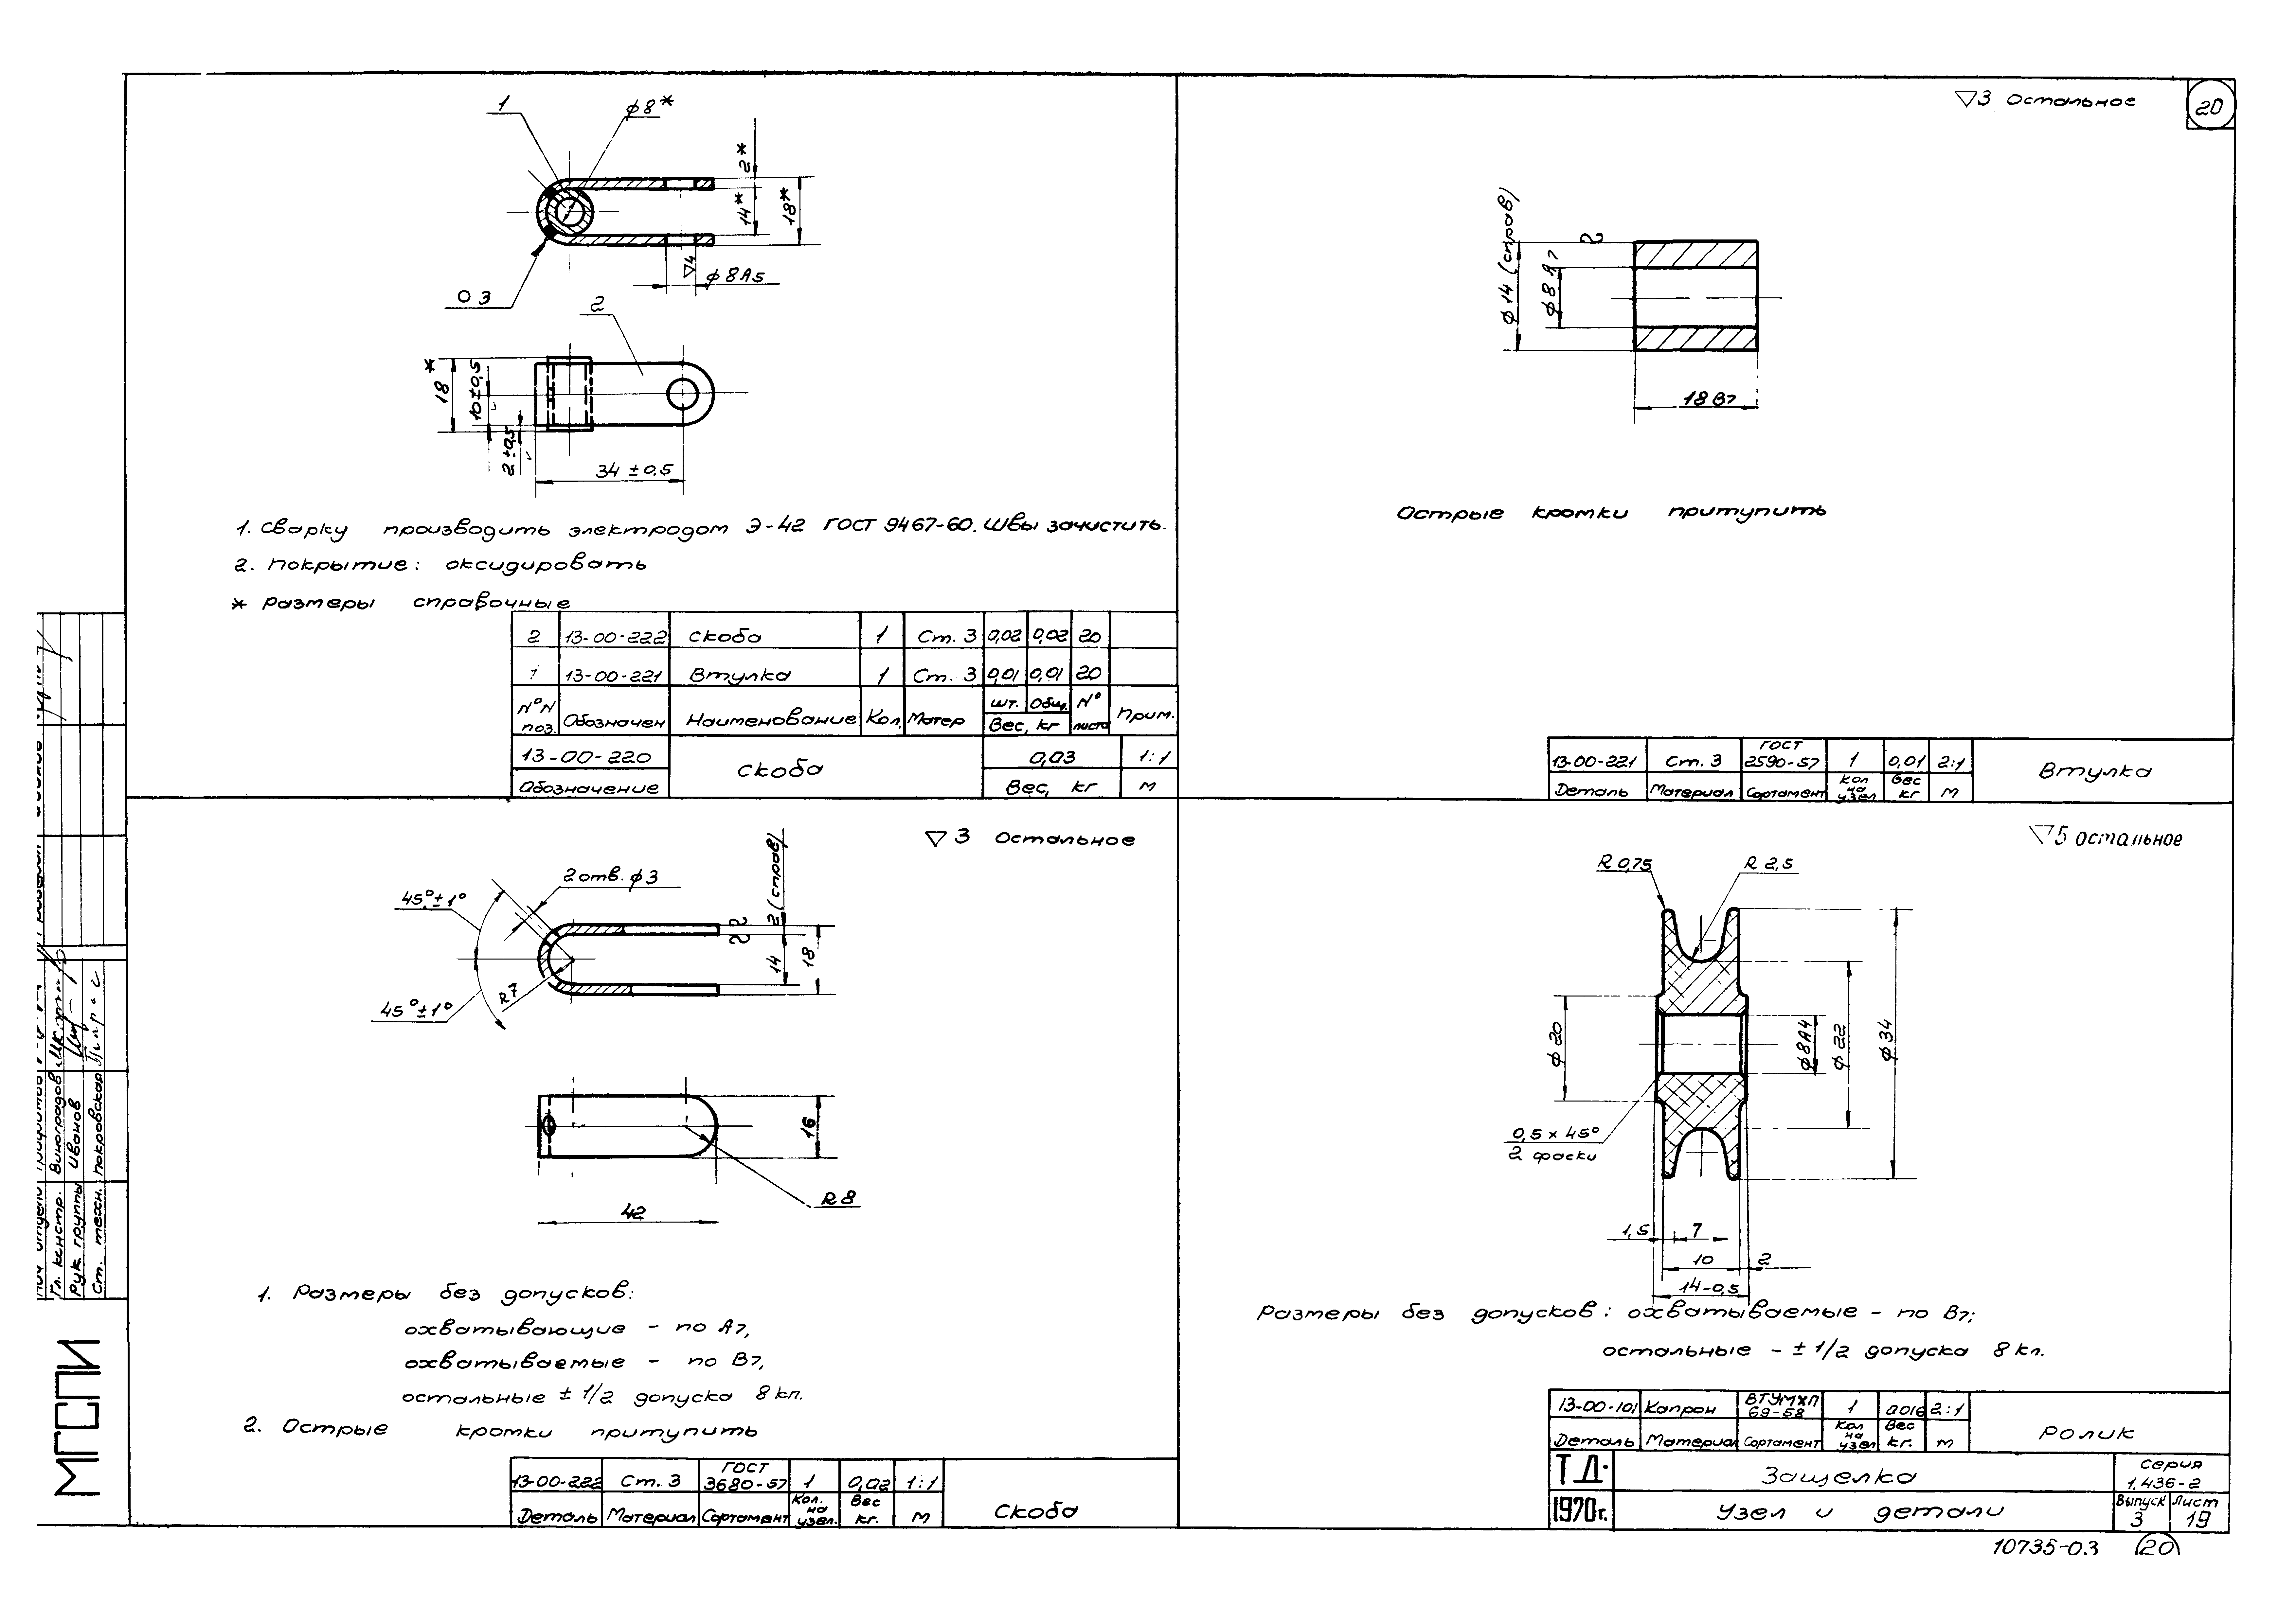 20
1
ϕ8*
2*
14*
18*
▽4
ϕ8А5
О 3
2
18*
10±0,5
2±0,5
34 ±0,5
1. Сварку производить электродом Э-42 ГОСТ 9467-60. Швы зачистить.
2. Покрытие: оксидировать
* Размеры справочные
2 13-00-222 Скоба 1 Ст. 3 0,02 0,02 20
1 13-00-221 Втулка 1 Ст. 3 0,01 0,01 20
№№ поз. Обозначен Наименование Кол. Матер шт. Общ. Вес, кг № листа Прим.
13-00-220 Скоба 0,03 1:1
Обозначение Вес, кг М
▽3 Остальное
ϕ14 (справ)
ϕ8 А7
18 В7
Острые кромки притупить
13-00-221 Ст. 3 ГОСТ 2590-57 1 0,01 2:1 Втулка
Деталь Материал Сортамент Кол на узел Вес кг М
▽ 3 Остальное
2 отв. ϕ3
45°±1°
45°±1°
R7
2 (справ)
14
18
16
R8
42
1. Размеры без допусков:
охватывающие - по А7,
охватываемые - по В7,
остальные ± 1/2 допуска 8 кл.
2. Острые кромки притупить
13-00-222 Ст. 3 ГОСТ 3680-57 1 0,02 1:1 Скоба
Деталь Материал Сортамент Кол. на узел. Вес кг. М
▽5 остальное
R 0,75
R 2,5
ϕ20
ϕ8А4
ϕ22
ϕ34
0,5 × 45°
2 фаски
1,5 7
10 2
14-0,5
Размеры без допусков: охватываемые - по В7;
остальные - ± 1/2 допуска 8 кл.
13-00-101 Капрон ВТУМХП 69-58 1 0016 2:1 Ролик
Деталь Материал Сортамент Кол на узел Вес кг. М
Т.Д. Защелка серия 1.436-2
1970г. Узел и детали Выпуск 3 Лист 19
10735-03 20
Гл. констр. Виноградов
Рук. группы Иванов
Ст. техн. Покровская
МГСПИ